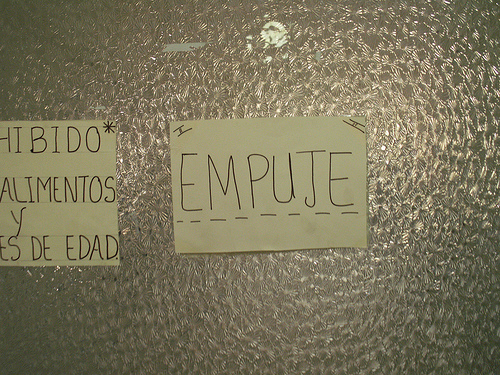 HIBIDO*
ALIMENTOS
y
ES DE EDAD.
EMPUJE